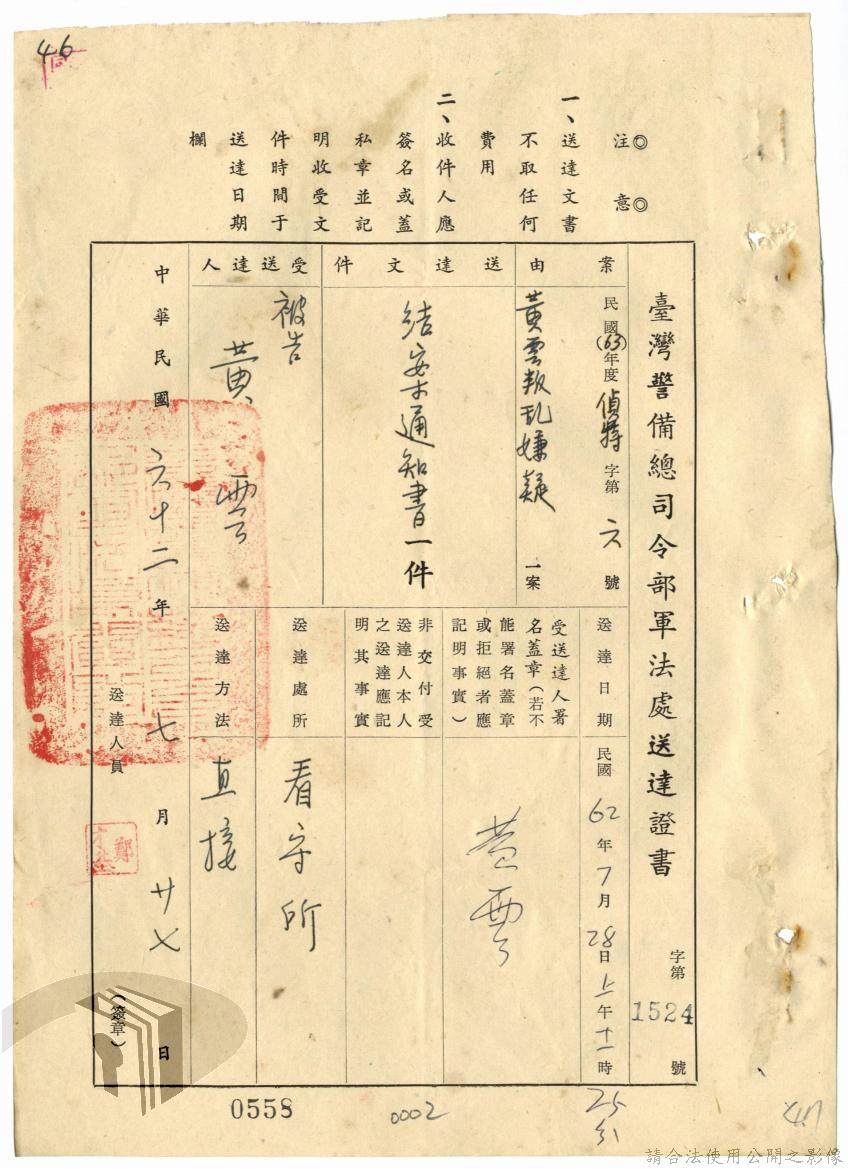 46
◎注意◎
一、送達文書
不取任何
費用
二、收件人應
簽名或蓋
私章並記
明收受文
件時間于
送達日期
欄
臺灣警備總司令部軍法處送達證書
字第1524號
案由
民國(63)年度偵特字第六號
黃雲叛乱嫌疑一案
送達文件
結案通知書一件
受送達人
被告
黃雲
送達日期
民國62年7月28日上午十一時
25分
受送達人署
名蓋章(若不
能署名蓋章
或拒絕者應
記明事實)
黃雲
非交付受
送達人本人
之送達應記
明其事實
送達處所
看守所
送達方法
直接
中華民國六十二年七月廿七日
送達人員
鄭
(簽章)
0558
0002
請合法使用公開之影像